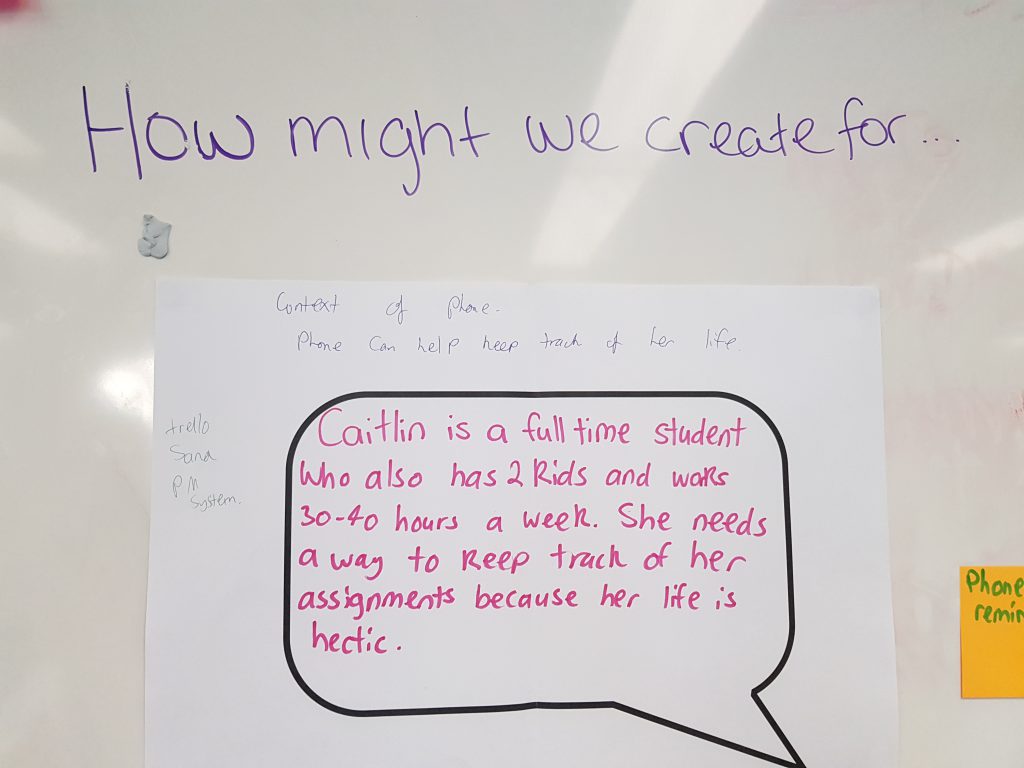 How might we create for...
Context of phone.
Phone can help keep track of her life.
trello
Sana
PM
System.
Caitlin is a full time student
who also has 2 kids and works
30-40 hours a week. She needs
a way to keep track of her
assignments because her life is
hectic.
Phone
remin